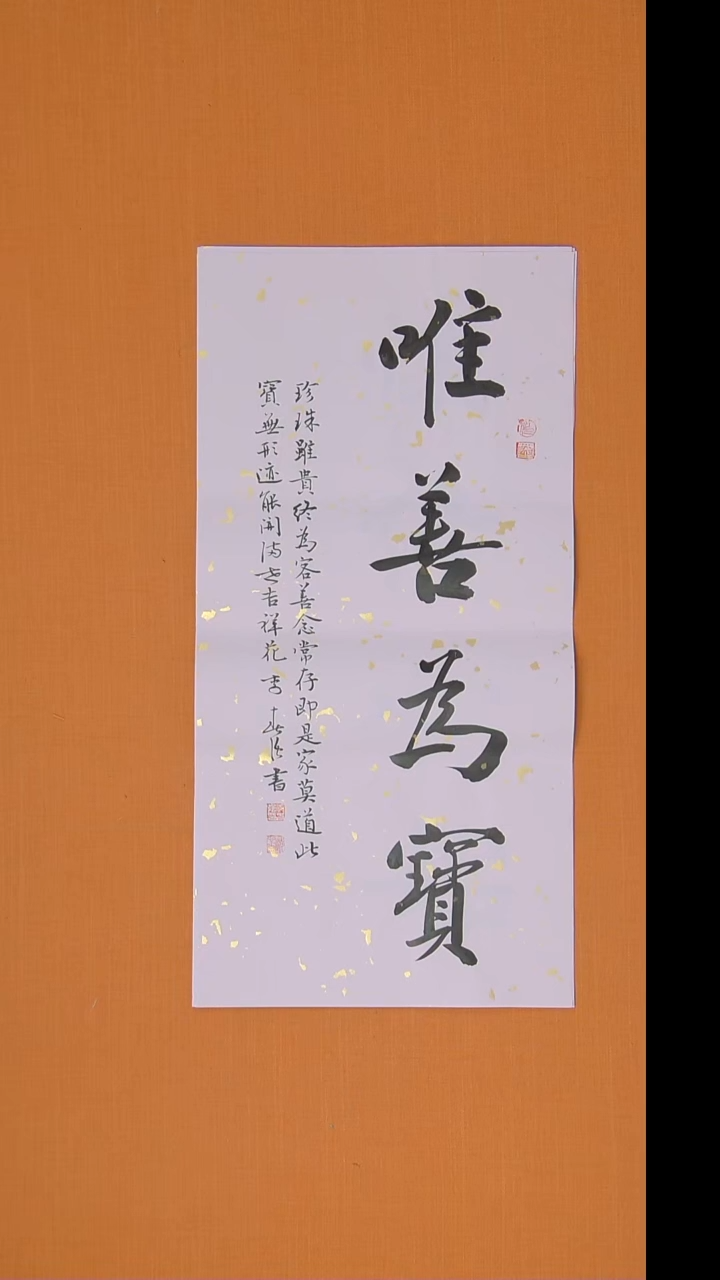 唯善為寳
珍珠雖貴終為客善念常存即是家莫道此
寳無形迹能開滿世吉祥花 書